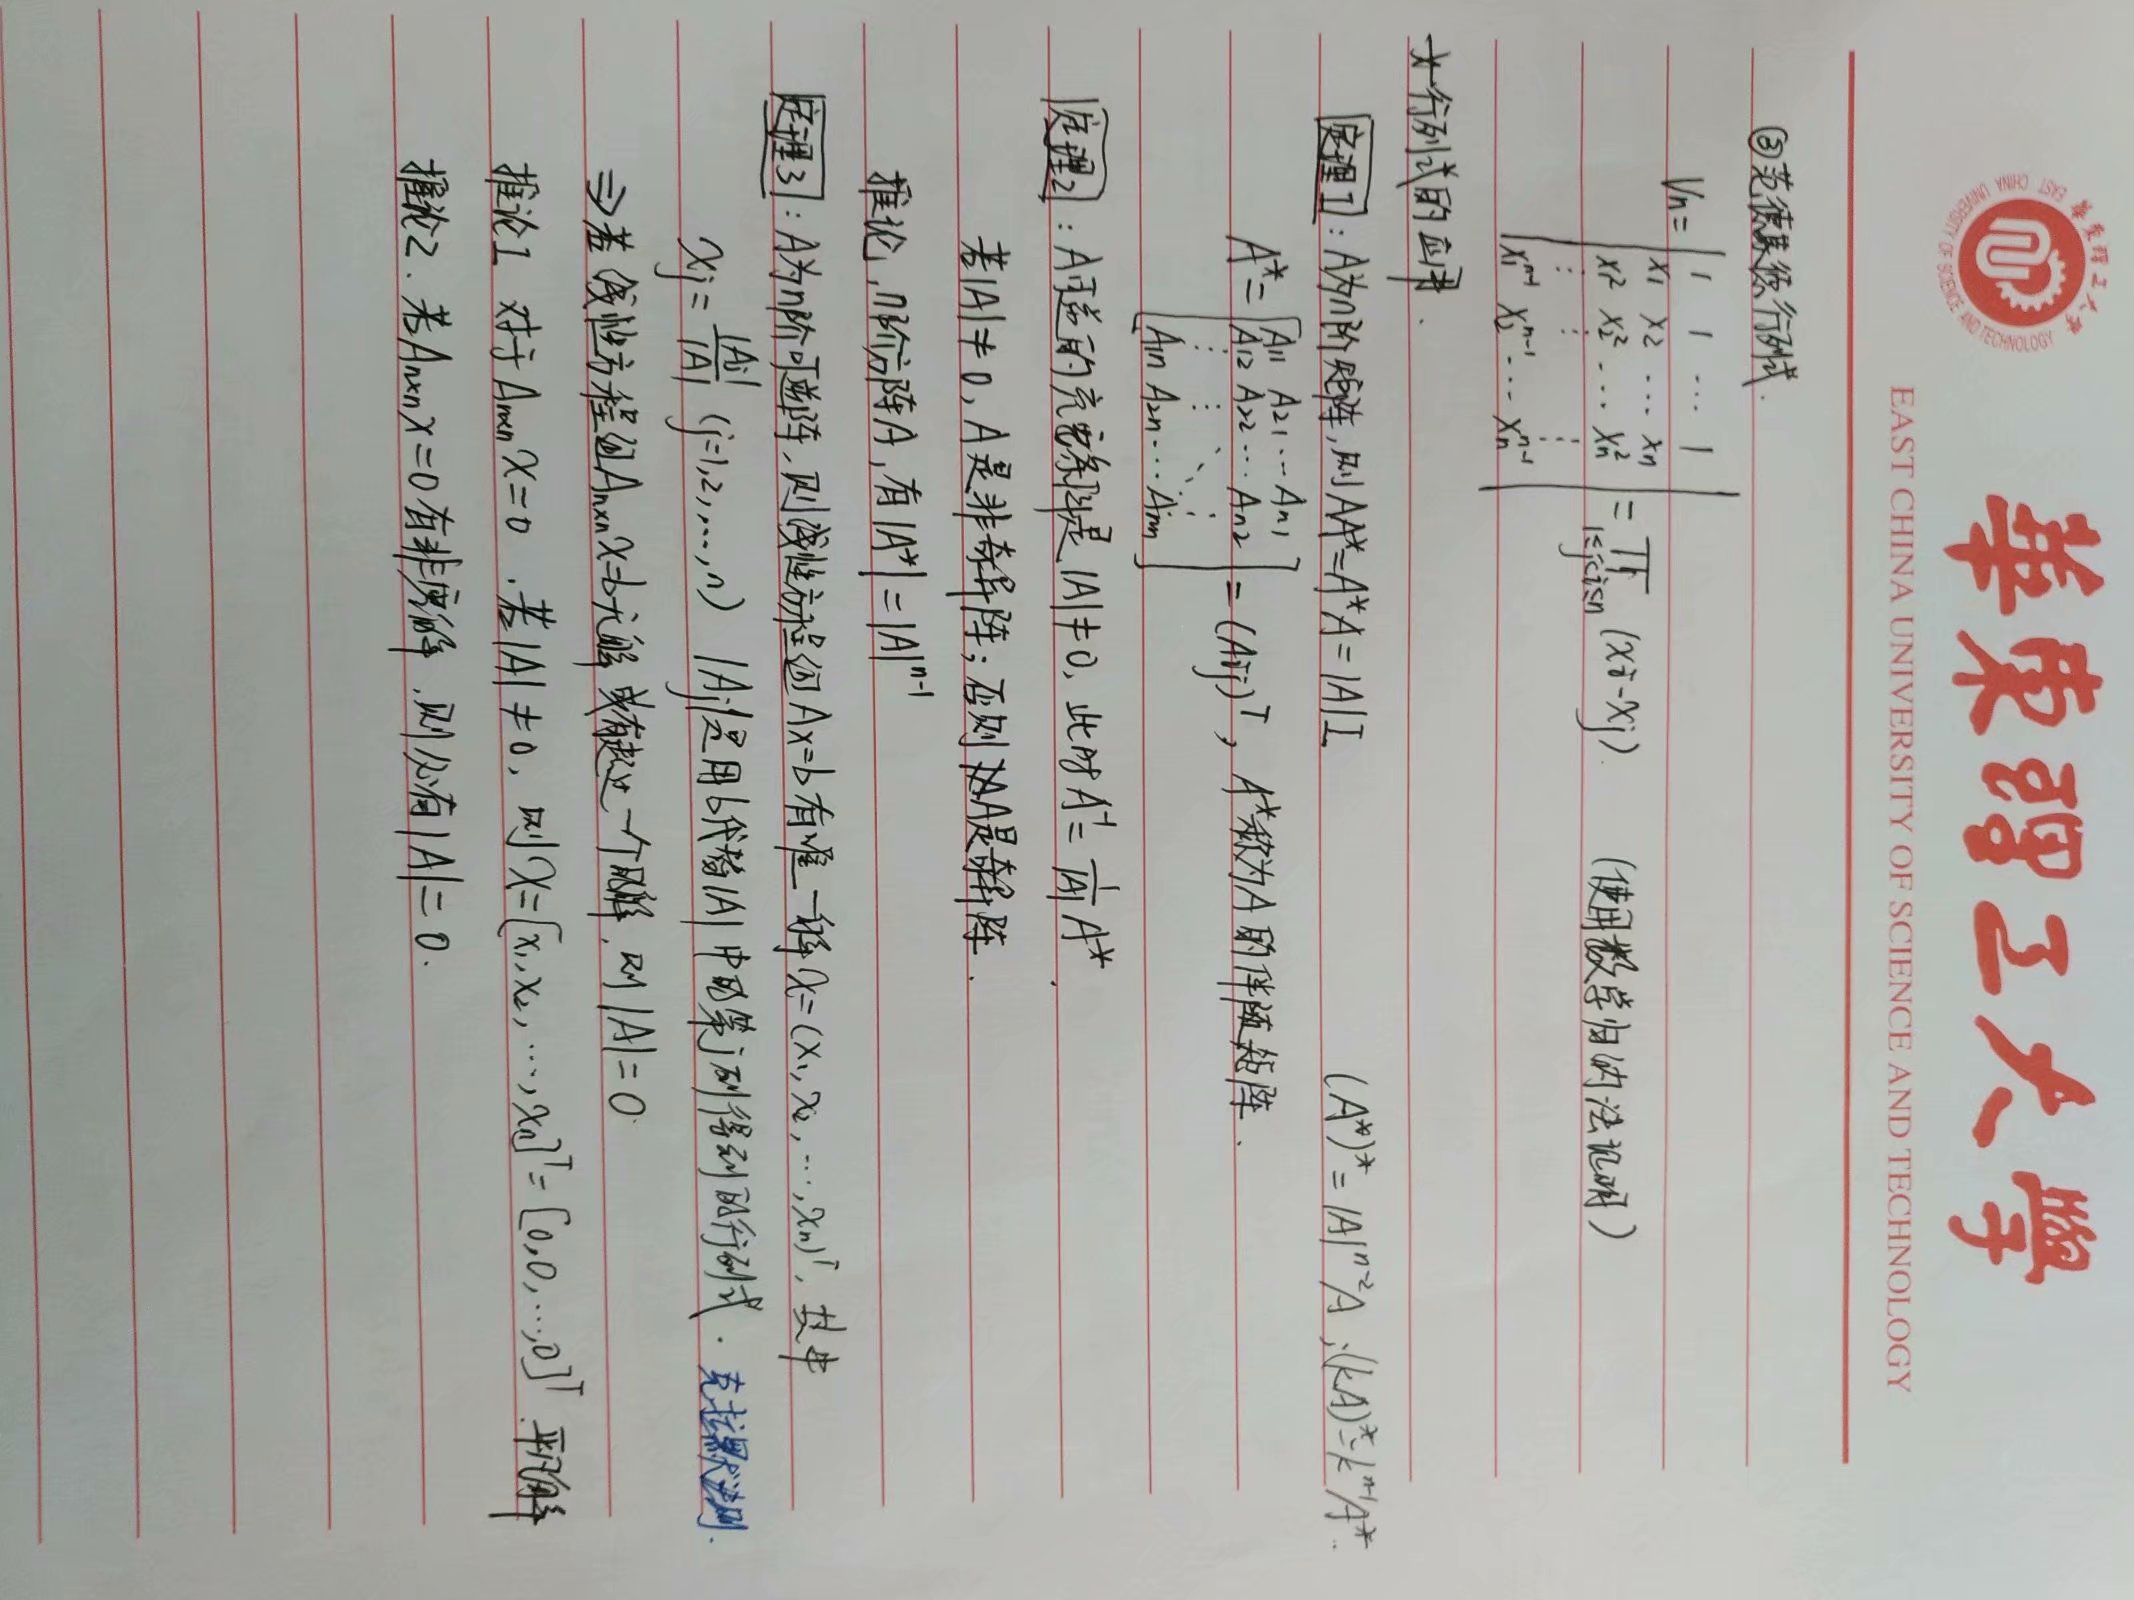 華東理工大學
EAST CHINA UNIVERSITY OF SCIENCE AND TECHNOLOGY
華東理工大學
EAST CHINA UNIVERSITY OF SCIENCE AND TECHNOLOGY
③范德蒙德行列式.
Vn = | 1 1 ⋯ 1
x₁ x₂ ⋯ xn
x₁² x₂² ⋯ xn²
⋮ ⋮ ⋮
x₁ⁿ⁻¹ x₂ⁿ⁻¹ ⋯ xnⁿ⁻¹ | = ∏ 1≤j<i≤n (xi-xj). (使用数学归纳法证明)
行列式的应用.
定理1: A为n阶矩阵, 则AA*=A*A=|A|I (A*)*=|A|ⁿ⁻²A; (kA)*=kⁿ⁻¹A*.
A*= [A11 A21 ⋯ An1
A12 A22 ⋯ An2
⋮ ⋮ ⋱ ⋮
A1n A2n ⋯ Ann] = (Aij)ᵀ, A*称为A的伴随矩阵.
定理2: A可逆的充要条件是|A|≠0, 此时A⁻¹= 1/|A| A*.
若|A|≠0, A是非奇异阵; 否则A是奇异阵.
推论, n阶方阵A, 有|A*|=|A|ⁿ⁻¹
定理3: A为n阶可逆阵, 则线性方程组Ax=b有唯一解x=(x₁,x₂,⋯,xn)ᵀ, 其中
xj= |Aj|/|A| (j=1,2,⋯,n) |Aj|是用b代替|A|中的第j列得到的行列式. 克拉默法则.
⇒若线性方程组An×n x=b无解或有超过一个的解, 则|A|=0
推论1 对于An×n x=0. 若|A|≠0, 则x=[x₁,x₂,⋯,xn]ᵀ=[0,0,⋯,0]ᵀ. 平凡解
推论2. 若An×n x=0有非零解, 则必有|A|=0.